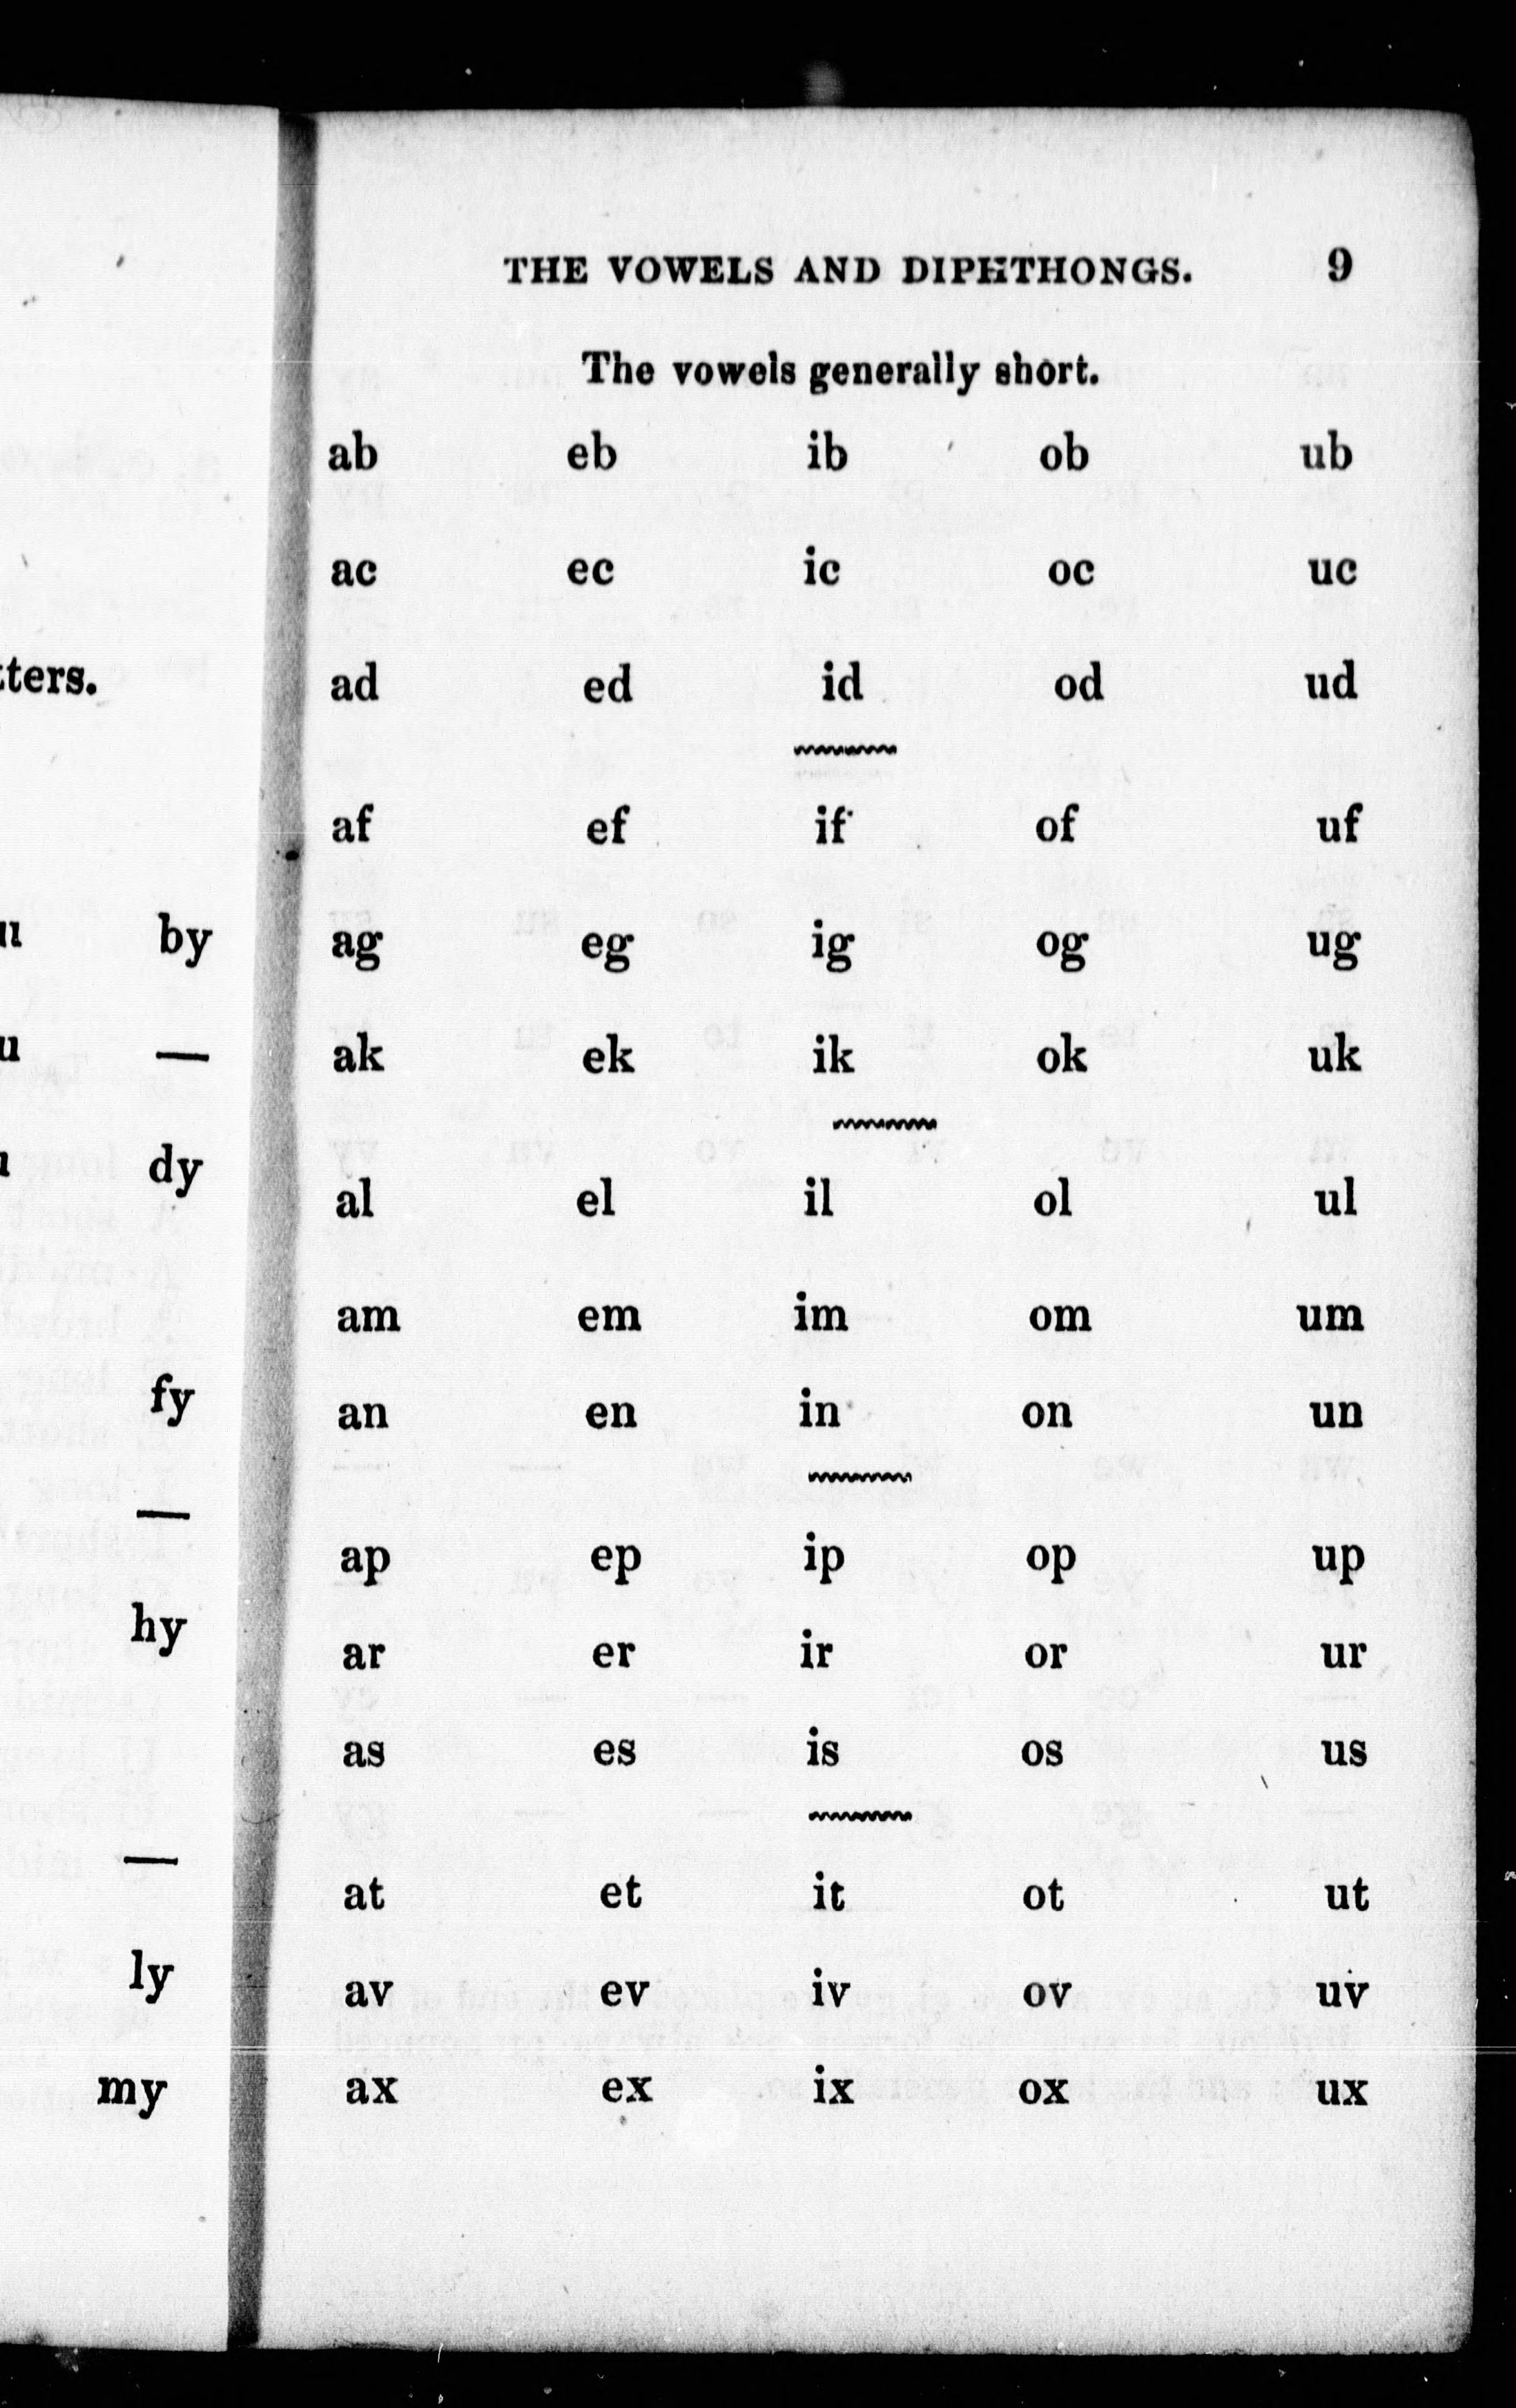 tters.
u by
u —
dy
fy
—
hy
—
ly
my
THE VOWELS AND DIPHTHONGS. 9
The vowels generally short.
ab eb ib ob ub
ac ec ic oc uc
ad ed id od ud
af ef if of uf
ag eg ig og ug
ak ek ik ok uk
al el il ol ul
am em im om um
an en in on un
ap ep ip op up
ar er ir or ur
as es is os us
at et it ot ut
av ev iv ov uv
ax ex ix ox ux